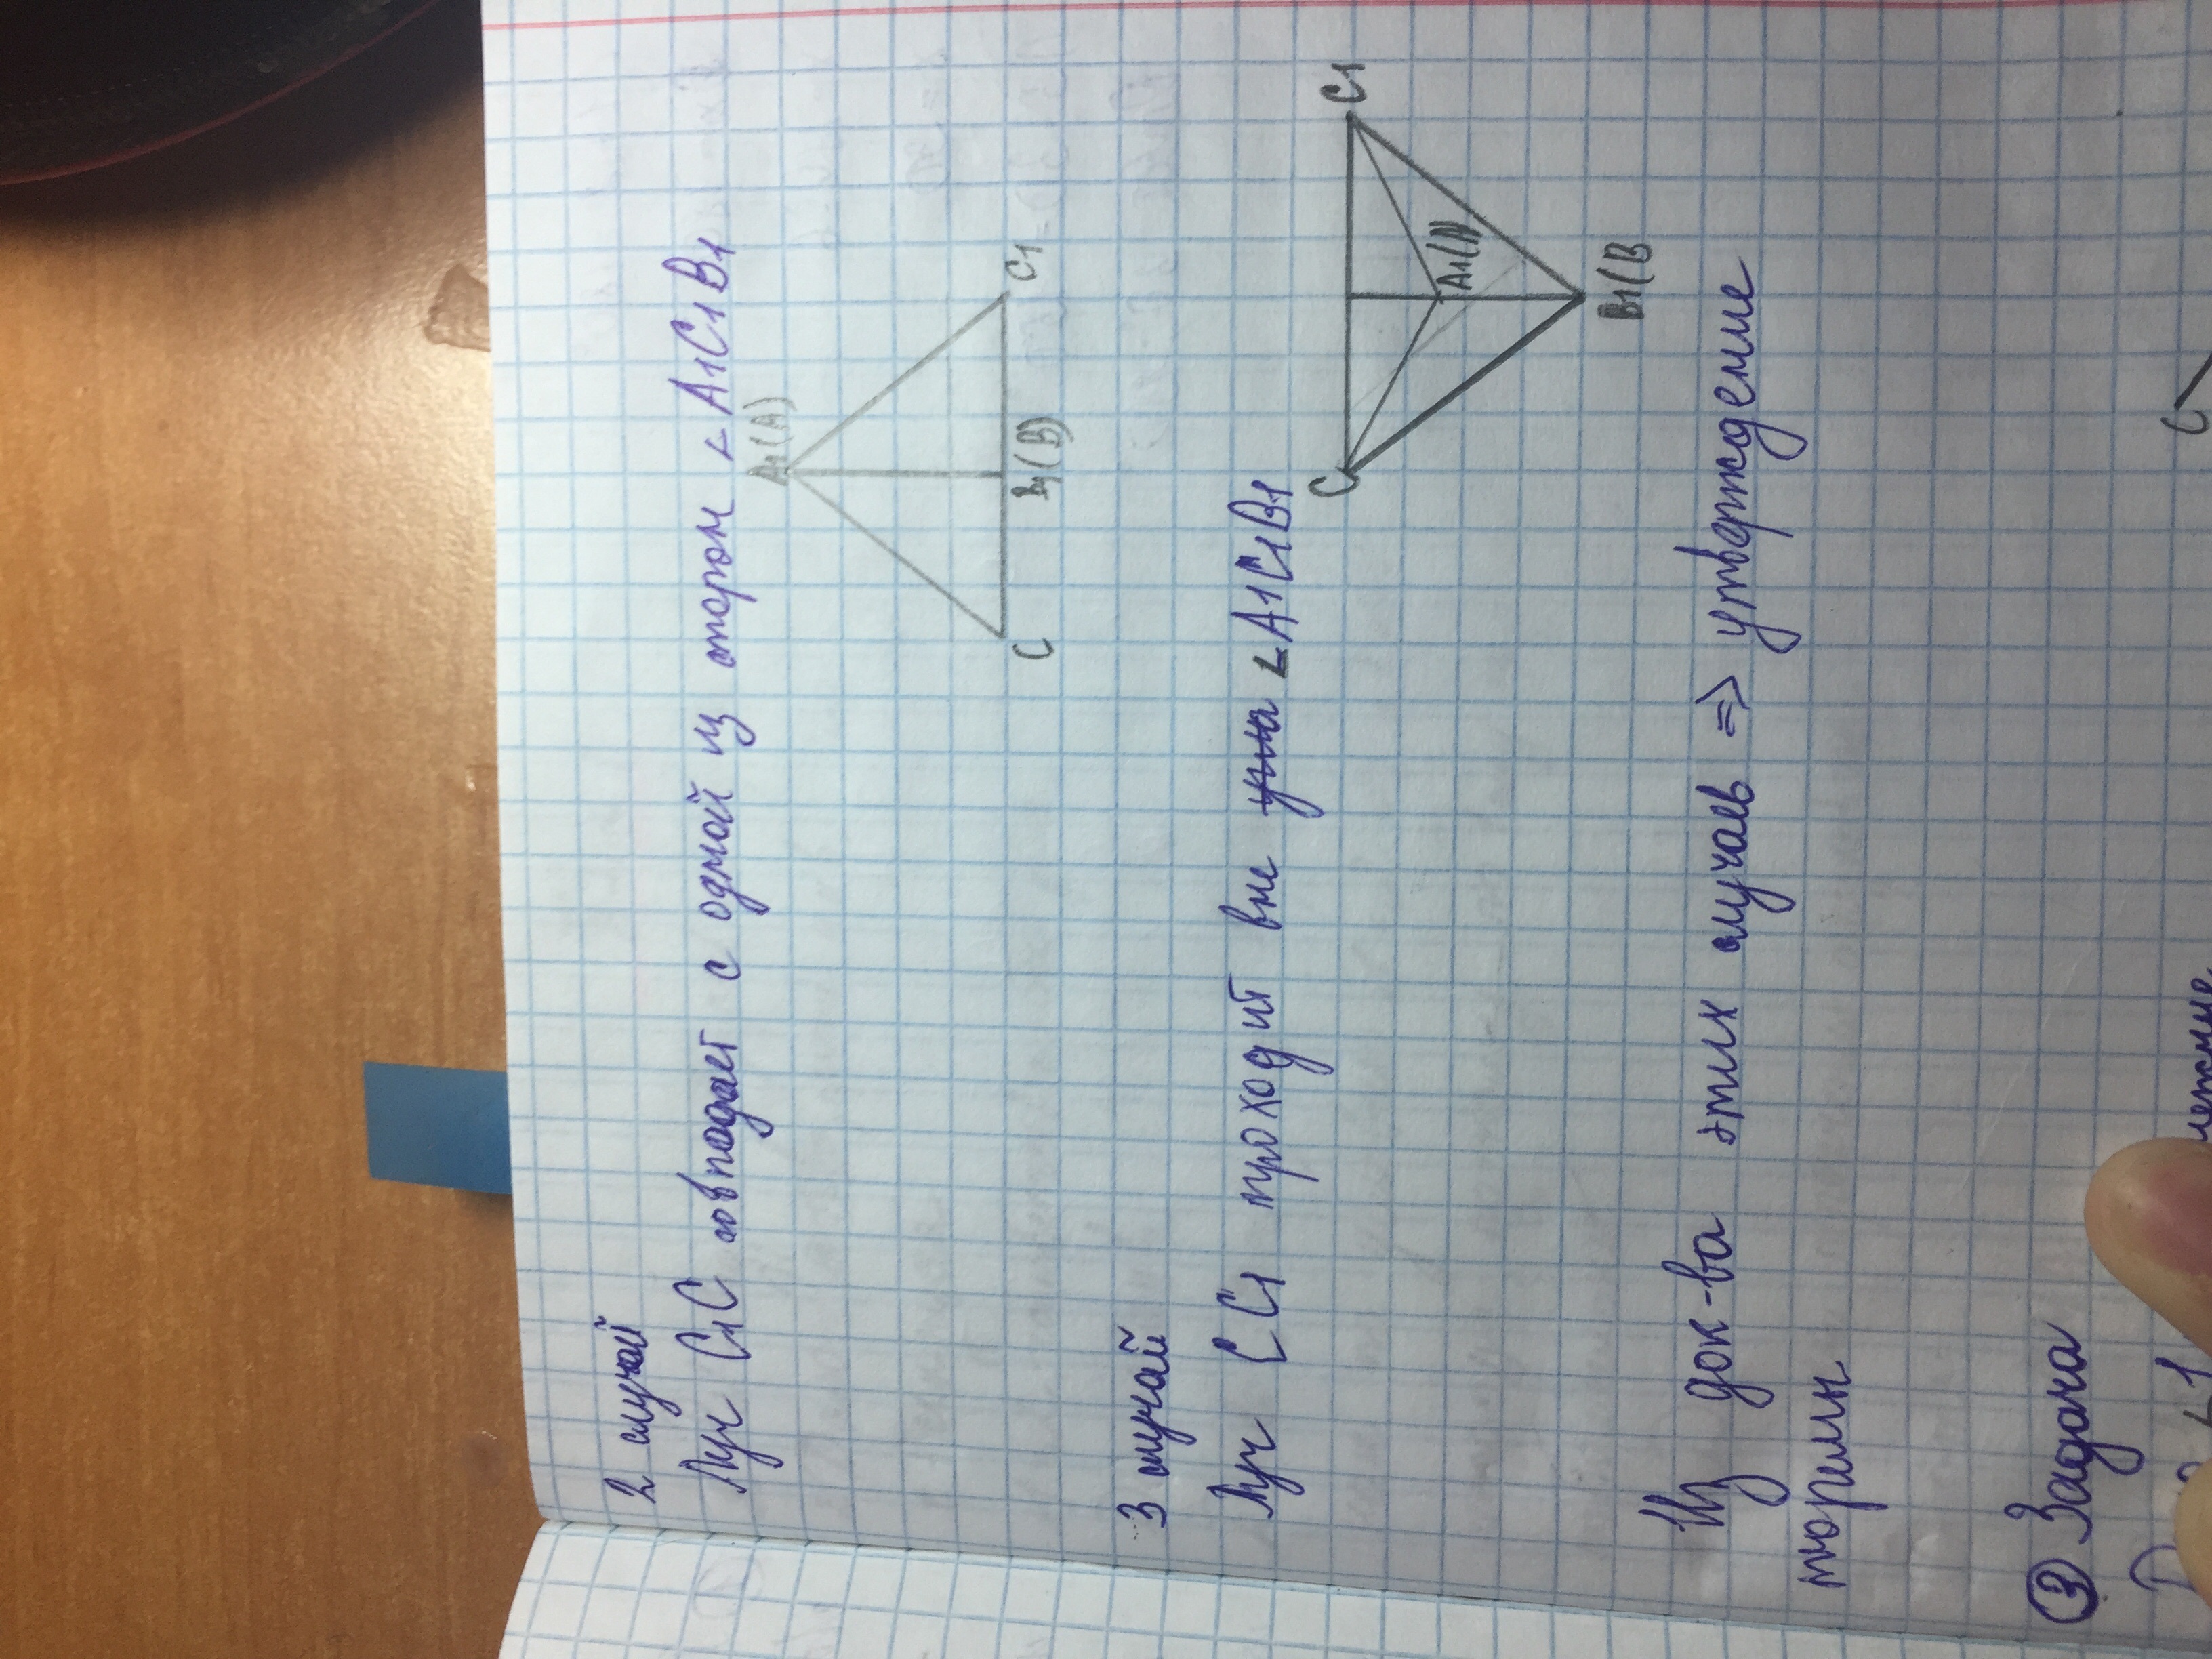 2 случай
Луч C1C совпадает с одной из сторон ∠A1C1B1
A1(A)
C
B1(B)
C1
3 случай
Луч CC1 проходит вне угла ∠A1C1B1
C
C1
A1(A)
B1(B
Из док-ва этих случаев => утверждение
теоремы
③ Задача
C